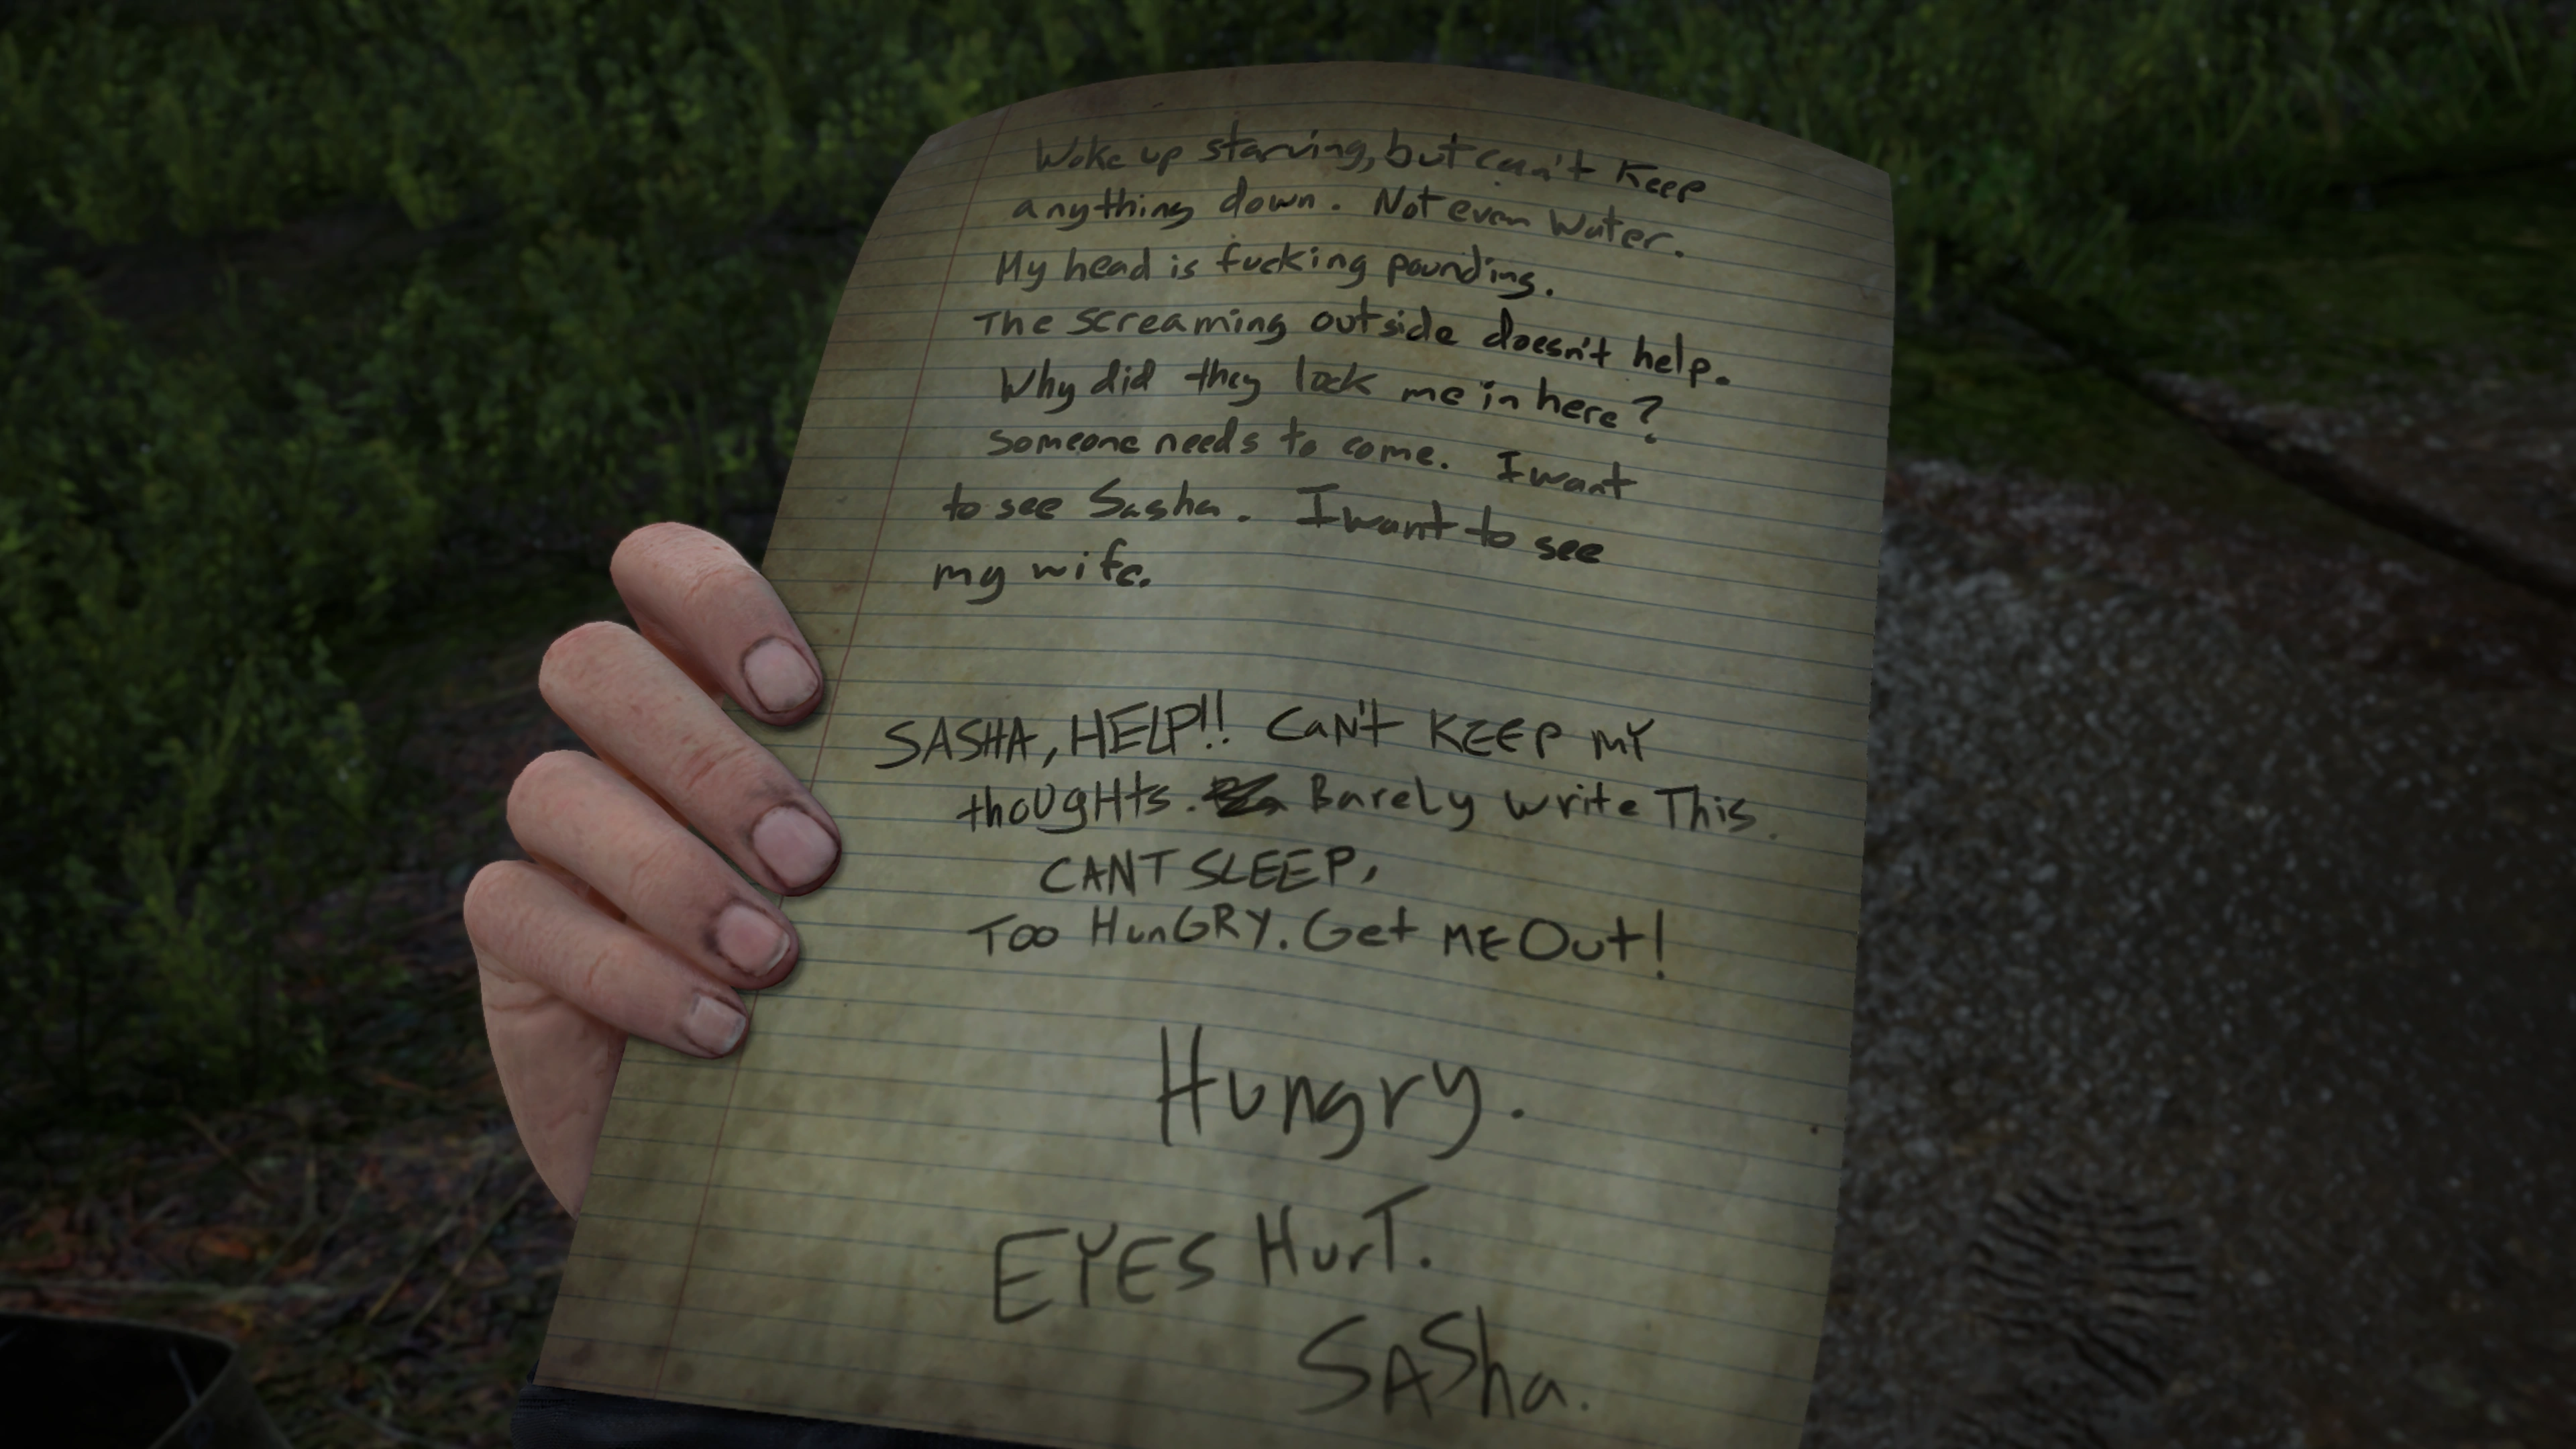 Woke up starving, but can't keep
anything down. Not even water.
My head is fucking pounding.
The screaming outside doesn't help.
Why did they lock me in here?
Someone needs to come. I want
to see Sasha. I want to see
my wife.
SASHA, HELP!! CaN't KEEP MY
thoUgHts. BareLy write This.
CANT SLEEP,
TOO HunGRY. Get ME Out!
Hungry.
EYES HurT.
SASha.